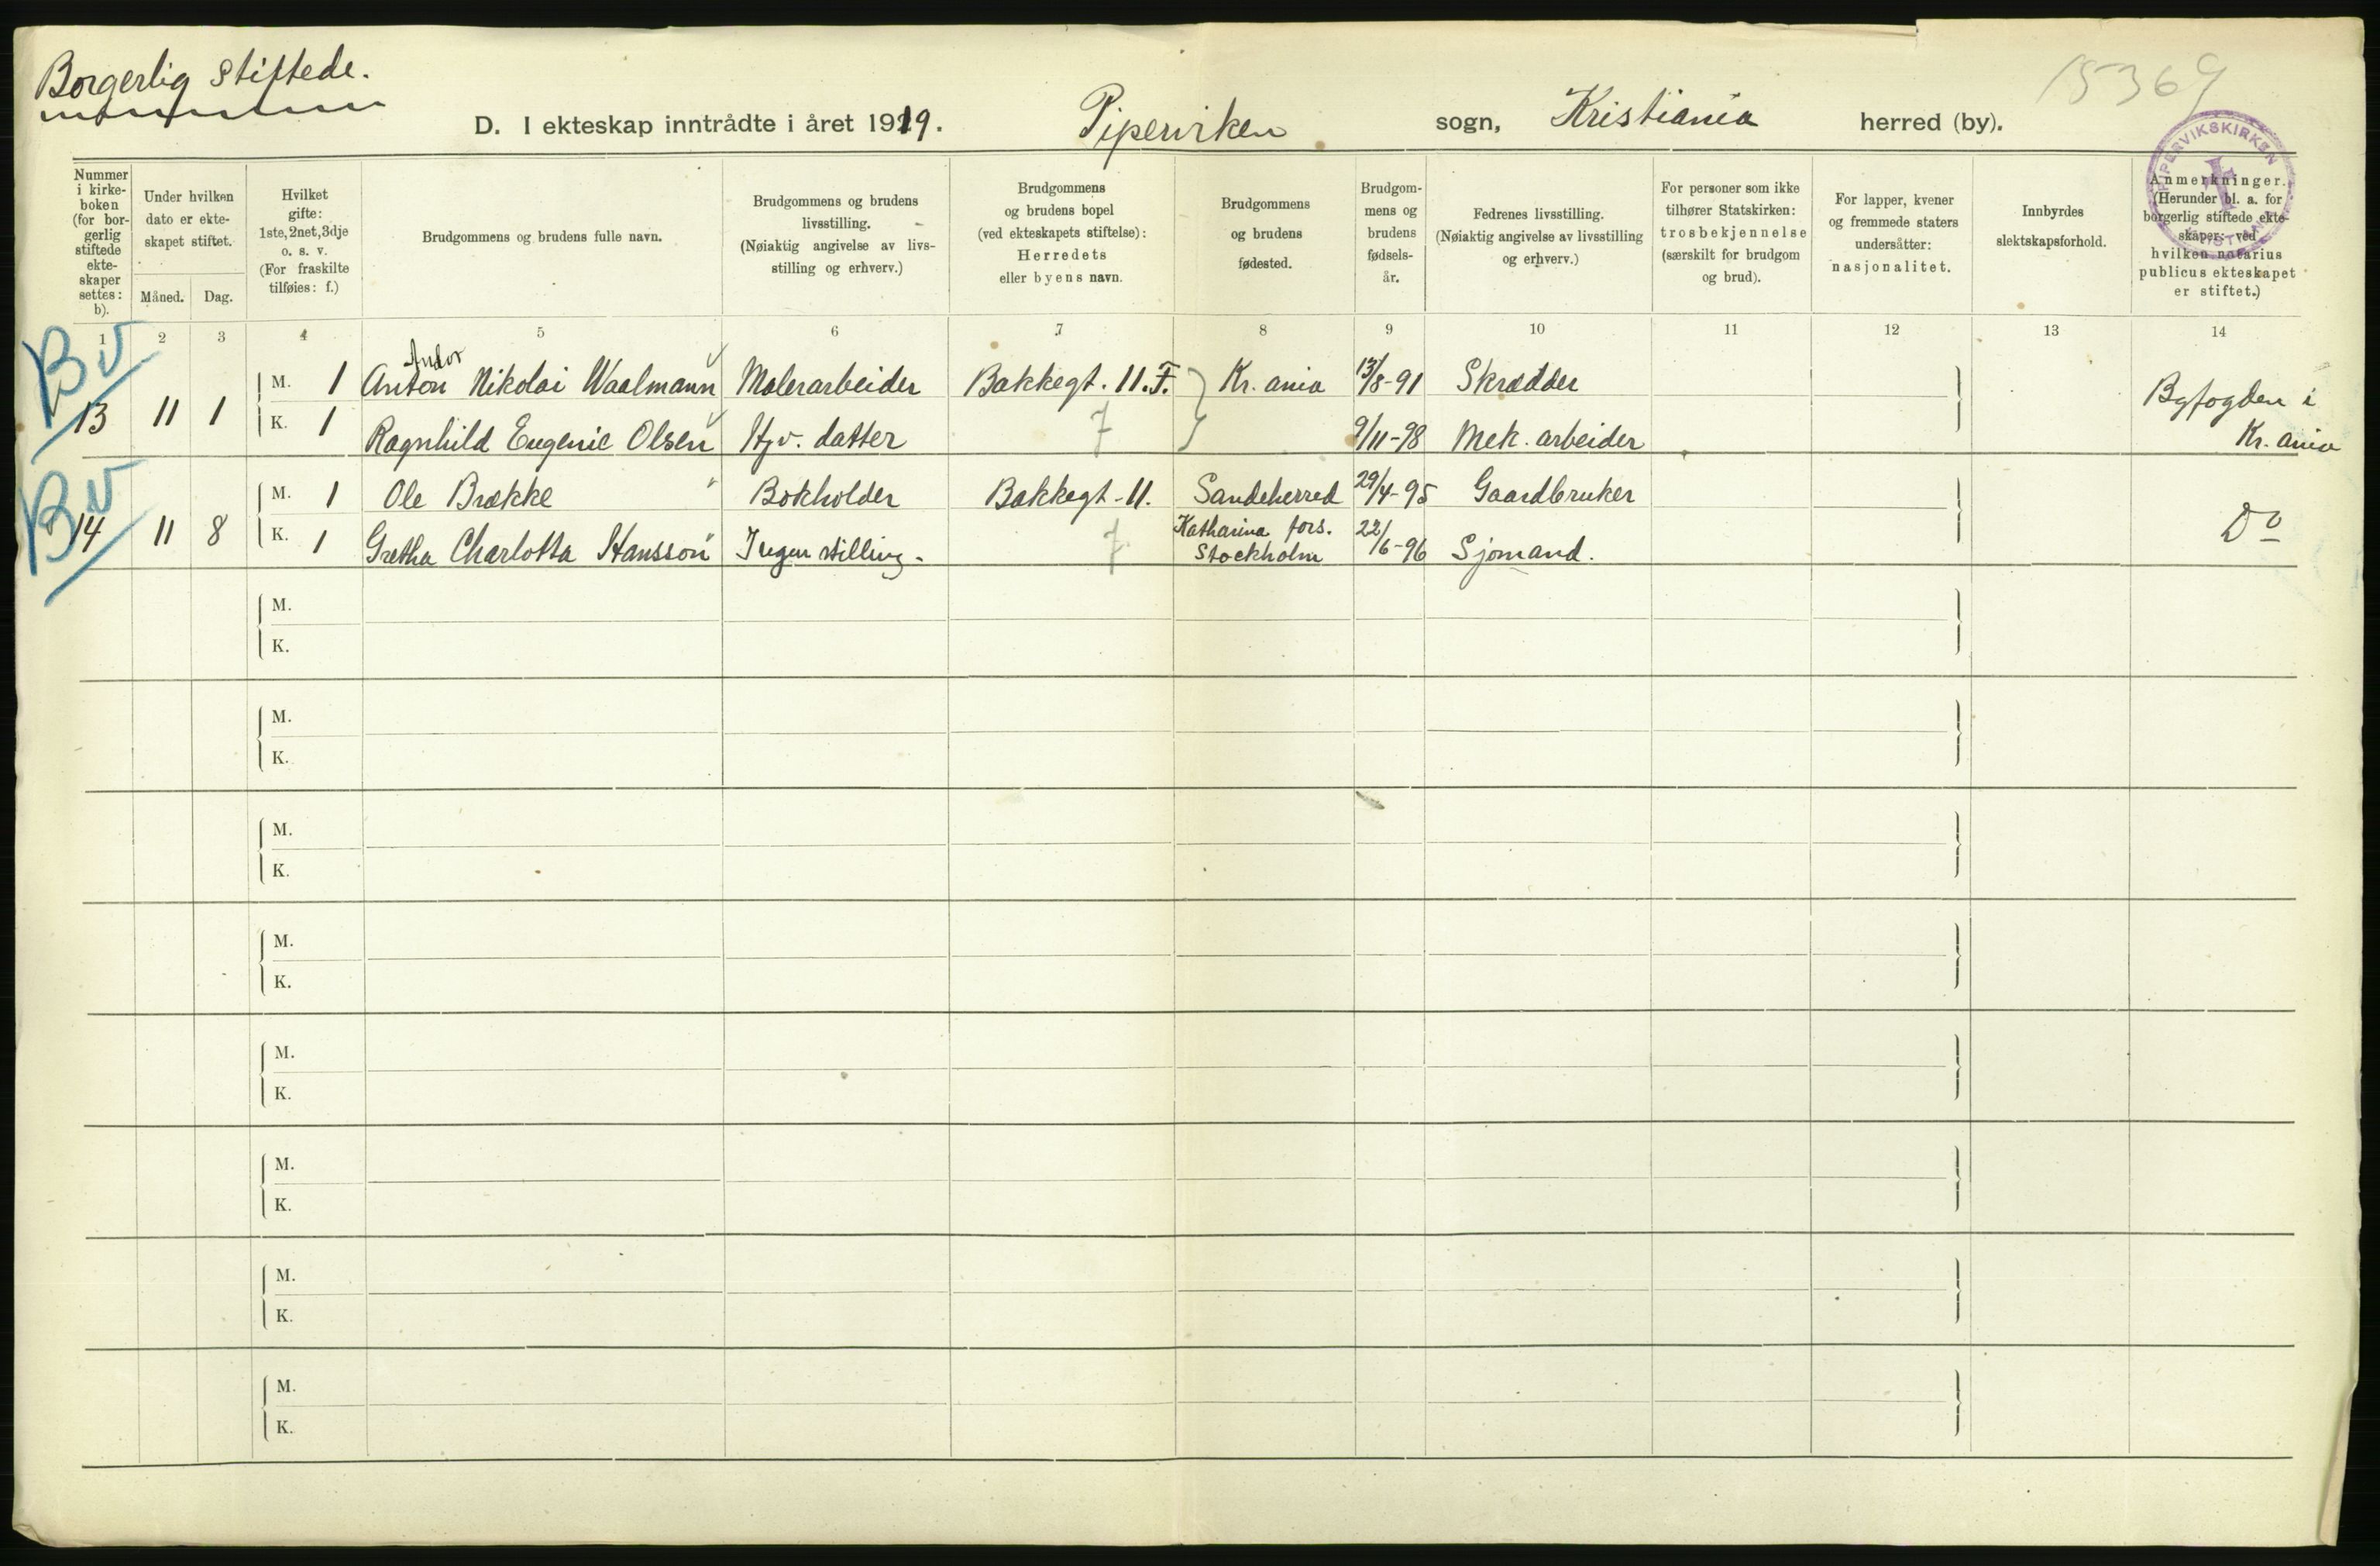 Borgerlig stiftede.
15369
D. I ekteskap inntrådte i året 1919. Pipervirken sogn, Kristiania herred (by).
PIPERVIKSKIRKEN
Nummer i kirke- boken (for bor- gerlig stiftede ekte- skaper settes: b).
Under hvilken dato er ekte- skapet stiftet.
Måned. Dag.
Hvilket gifte: 1ste, 2net, 3dje o. s. v. (For fraskilte tilføies: f.)
Brudgommens og brudens fulle navn.
Brudgommens og brudens livsstilling. (Nøiaktig angivelse av livs- stilling og erhverv.)
Brudgommens og brudens bopel (ved ekteskapets stiftelse): Herredets eller byens navn.
Brudgommens og brudens fødested.
Brudgom- mens og brudens fødsels- år.
Fedrenes livsstilling. (Nøiaktig angivelse av livsstilling og erhverv.)
For personer som ikke tilhører Statskirken: trosbekjennelse (særskilt for brudgom og brud).
For lapper, kvener og fremmede staters undersåtter: nasjonalitet.
Innbyrdes slektskapsforhold.
Anmerkninger. (Herunder bl. a. for borgerlig stiftede ekte- skaper: ved hvilken notarius publicus ekteskapet er stiftet.)
1 2 3 4 5 6 7 8 9 10 11 12 13 14
Bv
Andor
M. 1 Anton Nikolai Waalmann Malerarbeider Bakkegt. 11. F. Kr. ania 13/8-91 Skrædder Byfogden i
13 11 1
K. 1 Ragnhild Eugenie Olsen Hjv. datter 7 9/11-98 Mek. arbeider Kr. ania
Bv
M. 1 Ole Brække Bokholder Bakkegt. 11. Sandeherred 29/4-95 Gaardbruker
14 11 8 Do
Katharina fors.
K. 1 Gretha Charlotta Hansson Ingen stilling. 7 Stockholm 22/6-96 Sjømand.
M.
K.
M.
K.
M.
K.
M.
K.
M.
K.
M.
K.
M.
K.
M.
K.